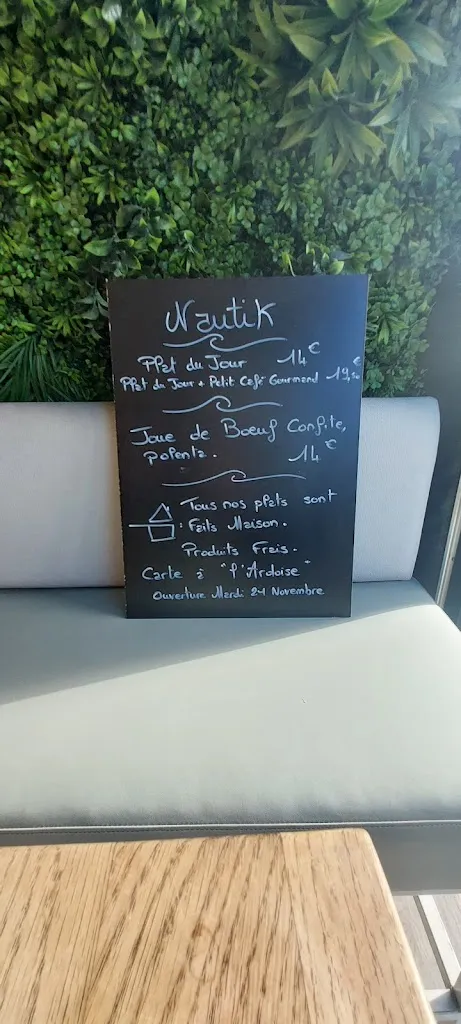 Nautik
Plat du Jour 14€
Plat du Jour + Petit Café Gourmand 19,50€
Joue de Boeuf Confite,
polenta. 14€
Tous nos plats sont
: Faits Maison.
Produits Frais.
Carte à "l'Ardoise"
Ouverture Mardi 24 Novembre